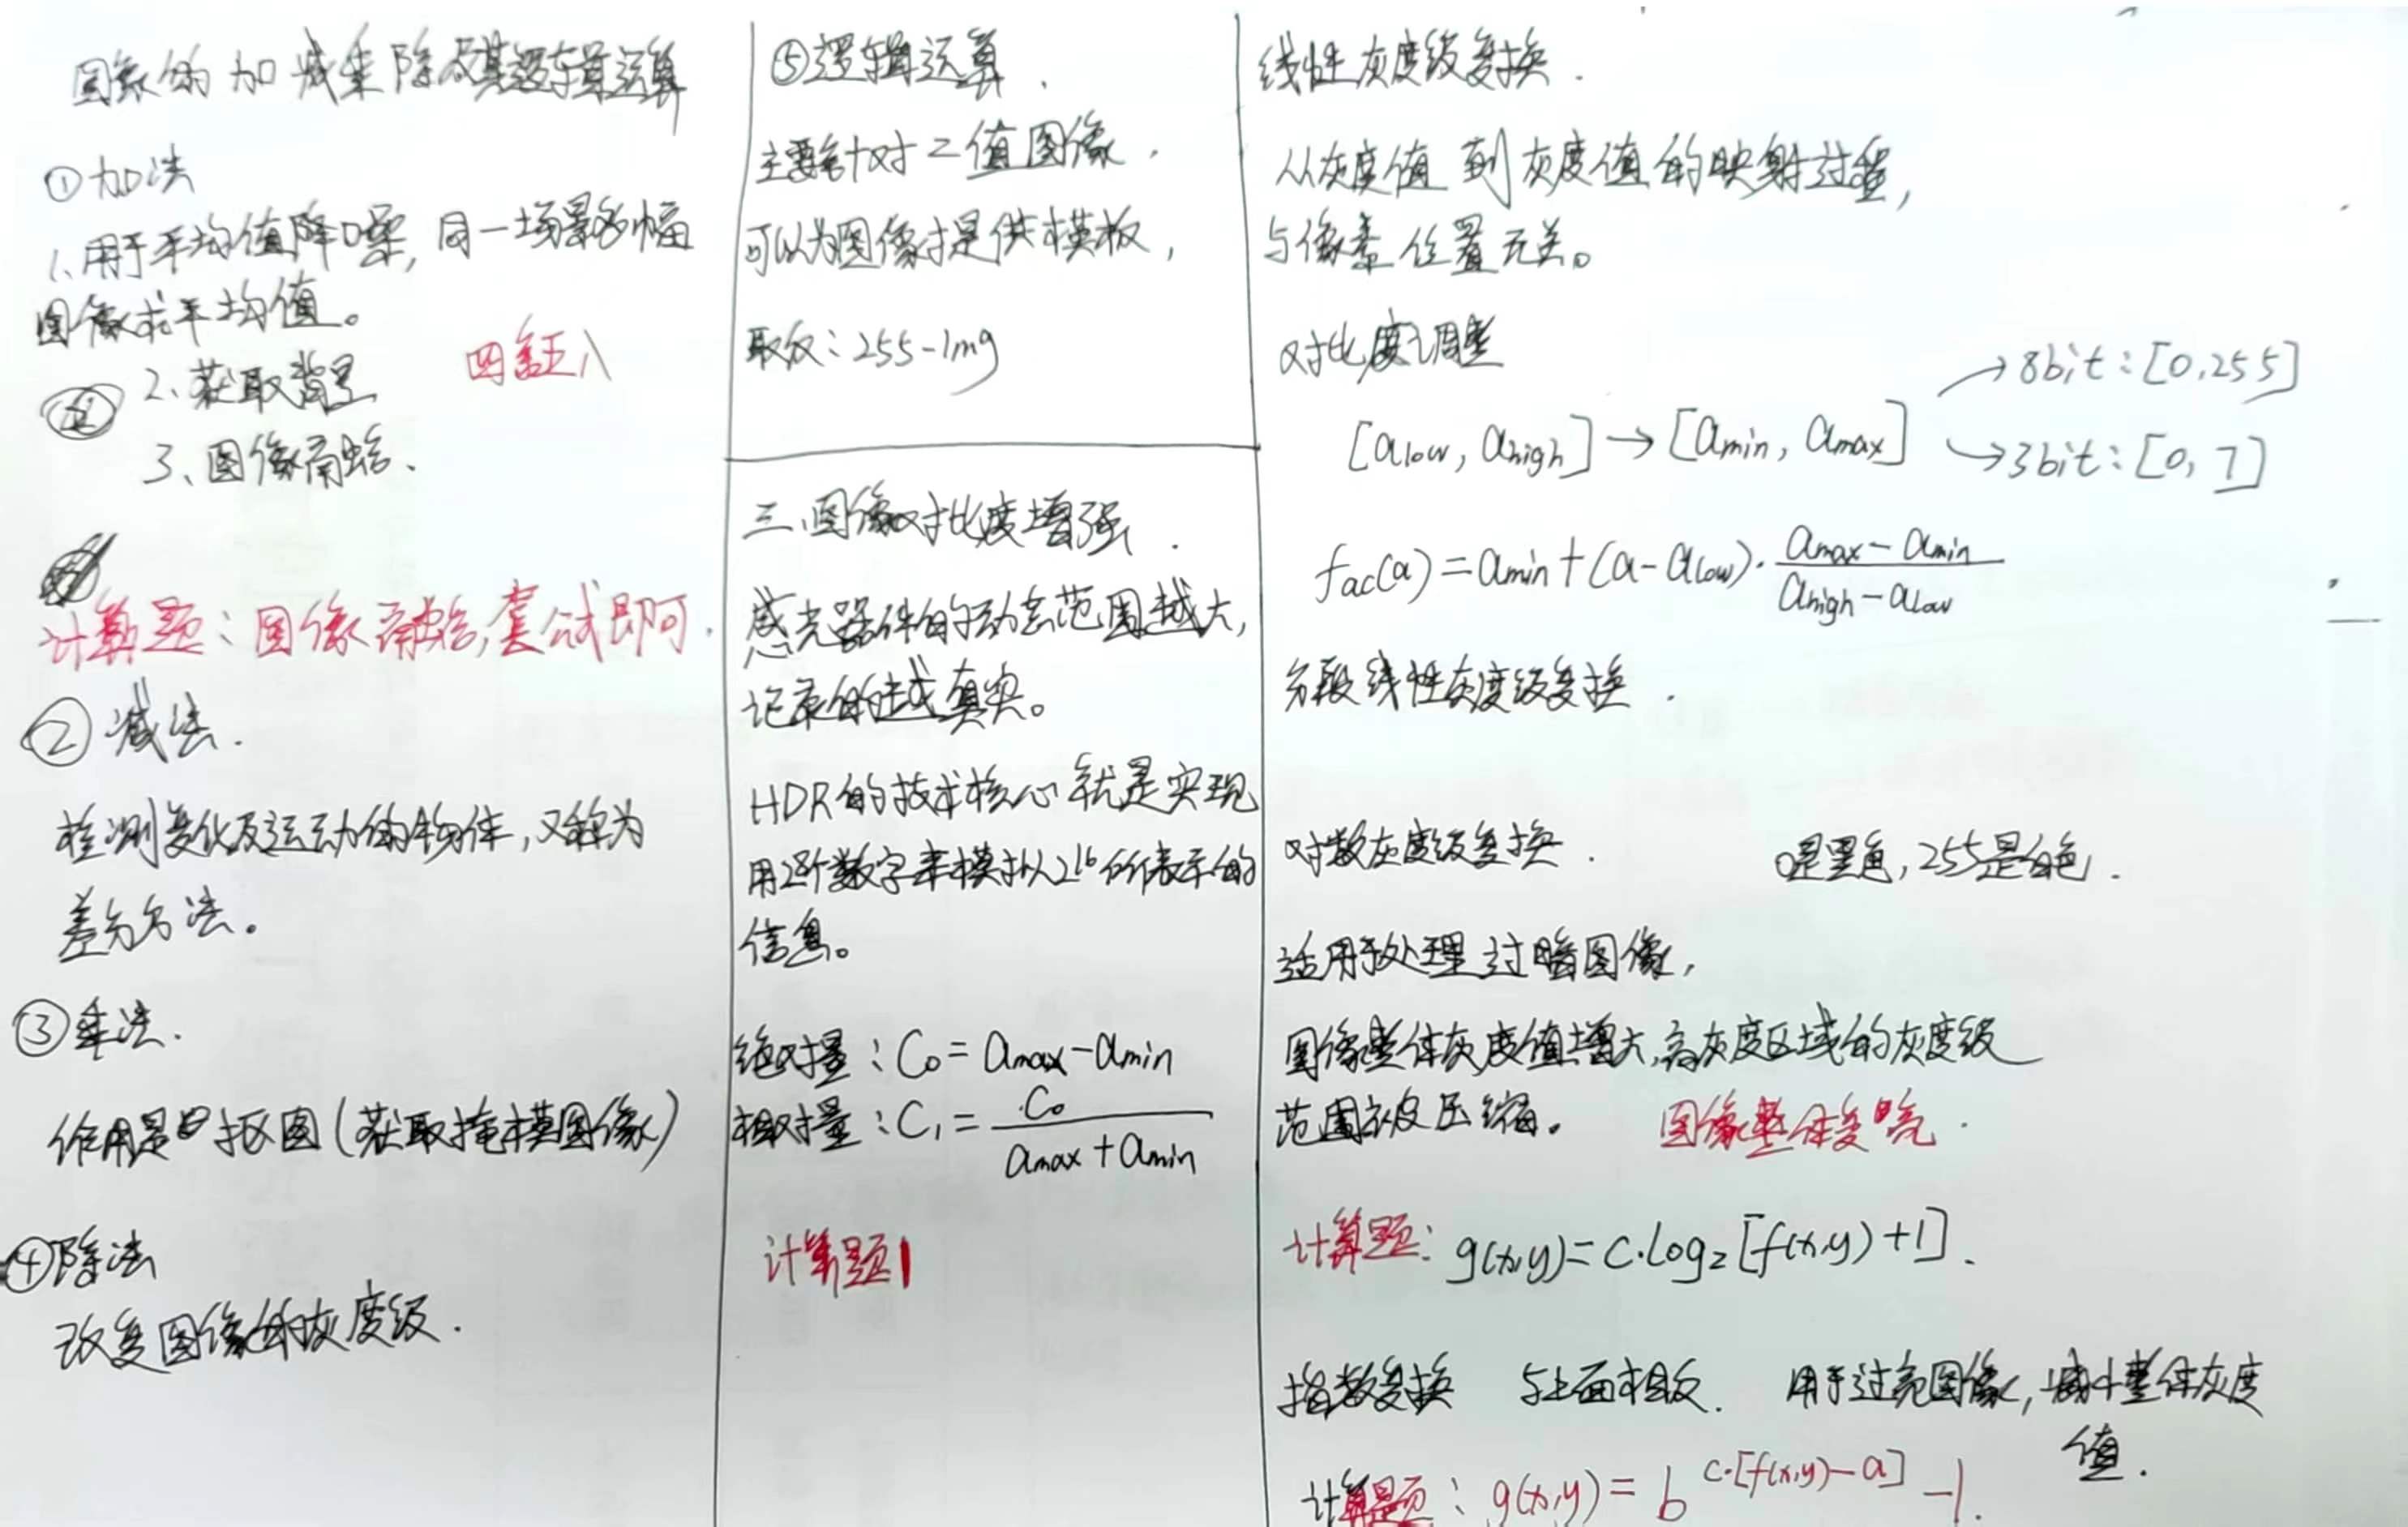 图像的加减乘除及其逻辑运算
①加法
1、用于平均值降噪,同一场景多幅
图像求平均值。
四舍五入
2、获取背景
3、图像融合、
计算题:图像融合,套公式即可.
② 减法.
检测变化及运动的物体,又称为
差分方法。
③乘法.
作用是抠图(获取掩模图像)
④除法
改变图像的灰度级.
⑤逻辑运算.
主要针对二值图像.
可以为图像提供模板,
取反:255-img
三、图像对比度增强.
感光器件的动态范围越大,
记录的越真实。
HDR的技术核心就是实现
用2⁸个数字来模拟2¹⁶所表示的
信息。
绝对量:C₀=amax-amin
相对量:C₁=C₀/(amax+amin)
计算题
线性灰度级变换.
从灰度值到灰度值的映射过程,
与像素位置无关。
对比度调整
[alow, ahigh]→[amin, amax]
→8bit:[0,255]
→3bit:[0,7]
fac(a)=amin+(a-alow)·(amax-amin)/(ahigh-alow)
分段线性灰度级变换.
对数灰度级变换.
0是黑色,255是白色.
适用于处理过暗图像,
图像整体灰度值增大,高灰度区域的灰度级
范围被压缩。
图像整体变亮.
计算题:g(x,y)=c·log₂[f(x,y)+1].
指数变换 与上面相反. 用于过亮图像,减小整体灰度
值.
计算题:g(x,y)=b^(c·[f(x,y)-a])-1.